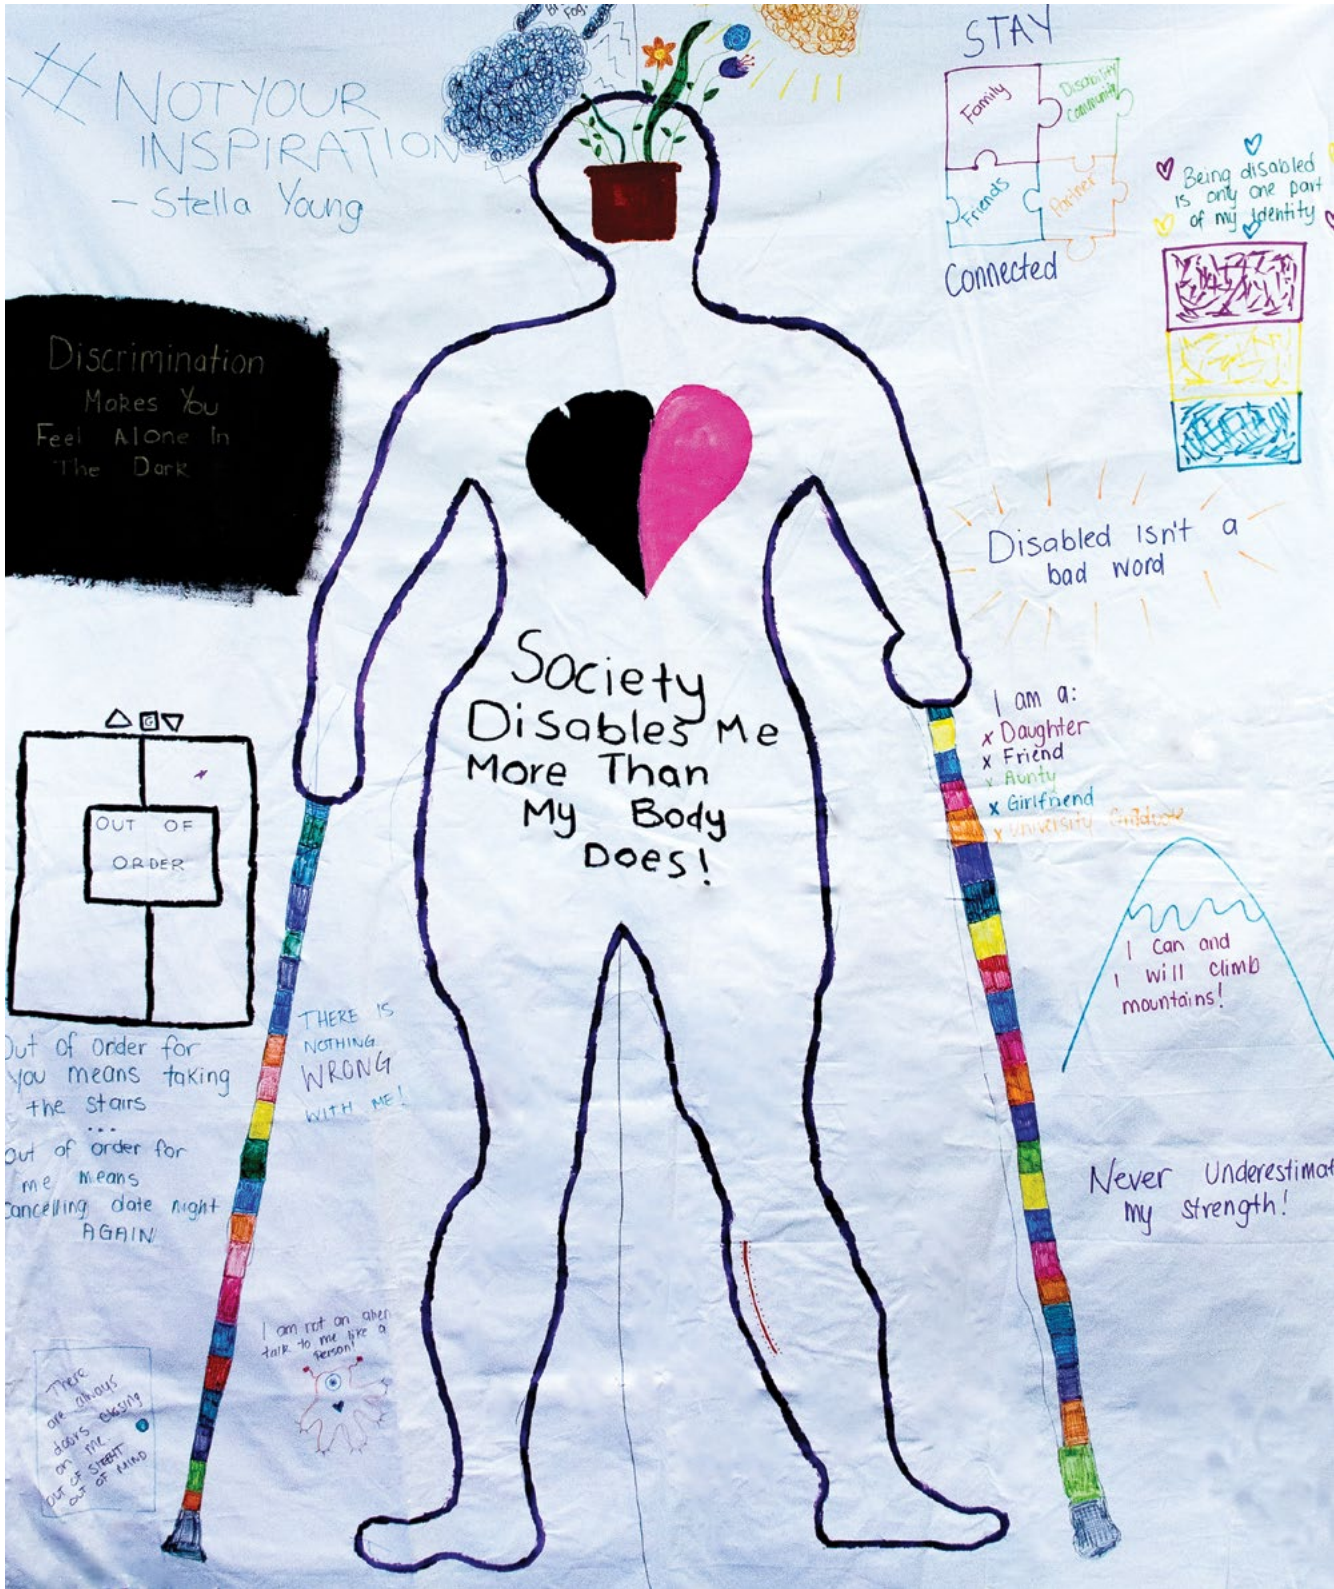 Fog.
# NOT YOUR
INSPIRATION
- Stella Young
STAY
Family
Disability
Community
Friends
Partner
Connected
Being disabled
is only one part
of my identity
Discrimination
Makes You
Feel Alone In
The Dark
Disabled isn't a
bad word
Society
Disables Me
More Than
My Body
Does!
I am a:
x Daughter
x Friend
x Aunty
x Girlfriend
x University
G
OUT OF
ORDER
Out of order for
you means taking
the stairs
...
Out of order for
me means
cancelling date night
AGAIN
THERE IS
NOTHING
WRONG
WITH ME!
I can and
I will climb
mountains!
Never Underestimat
my strength!
I am not an alien
talk to me like a
Person!
There
are always
doors closing
on me.
OUT OF SIGHT
OUT OF MIND